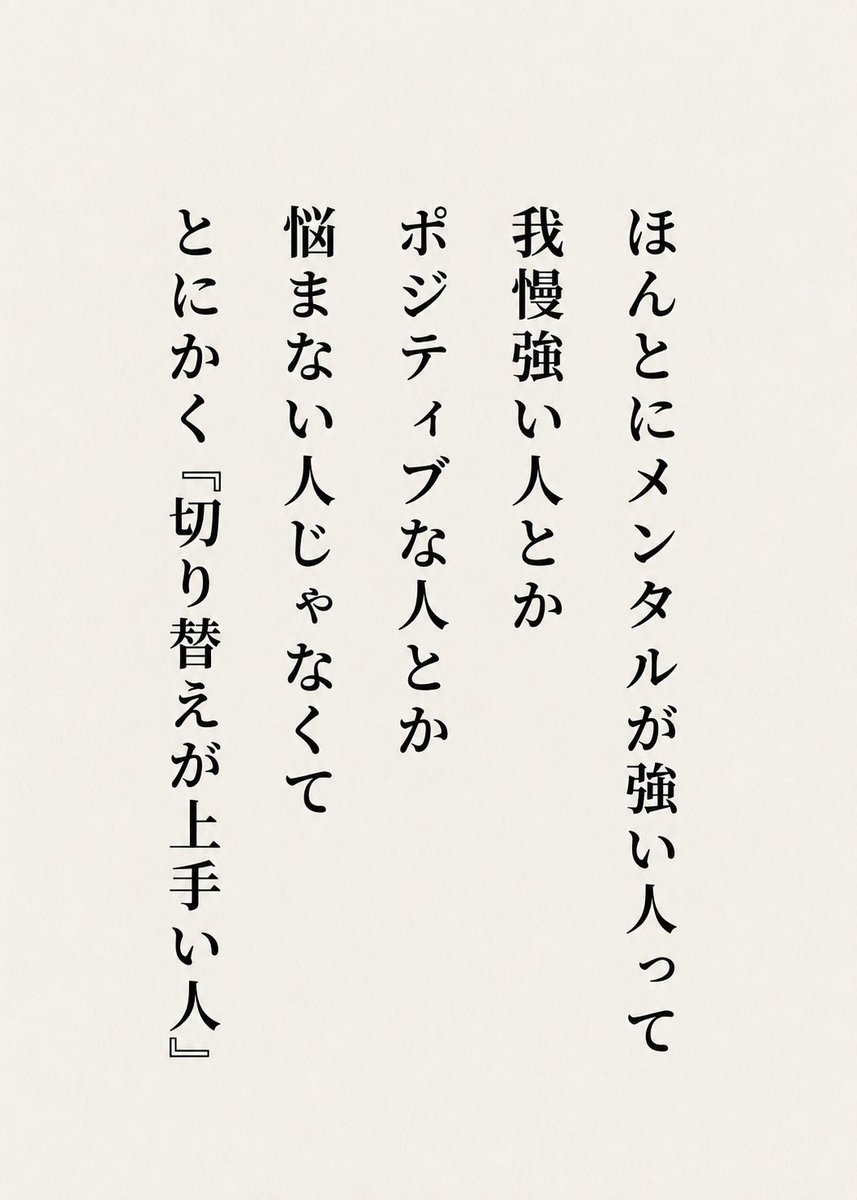 ほんとにメンタルが強い人って
我慢強い人とか
ポジティブな人とか
悩まない人じゃなくて
とにかく『切り替えが上手い人』